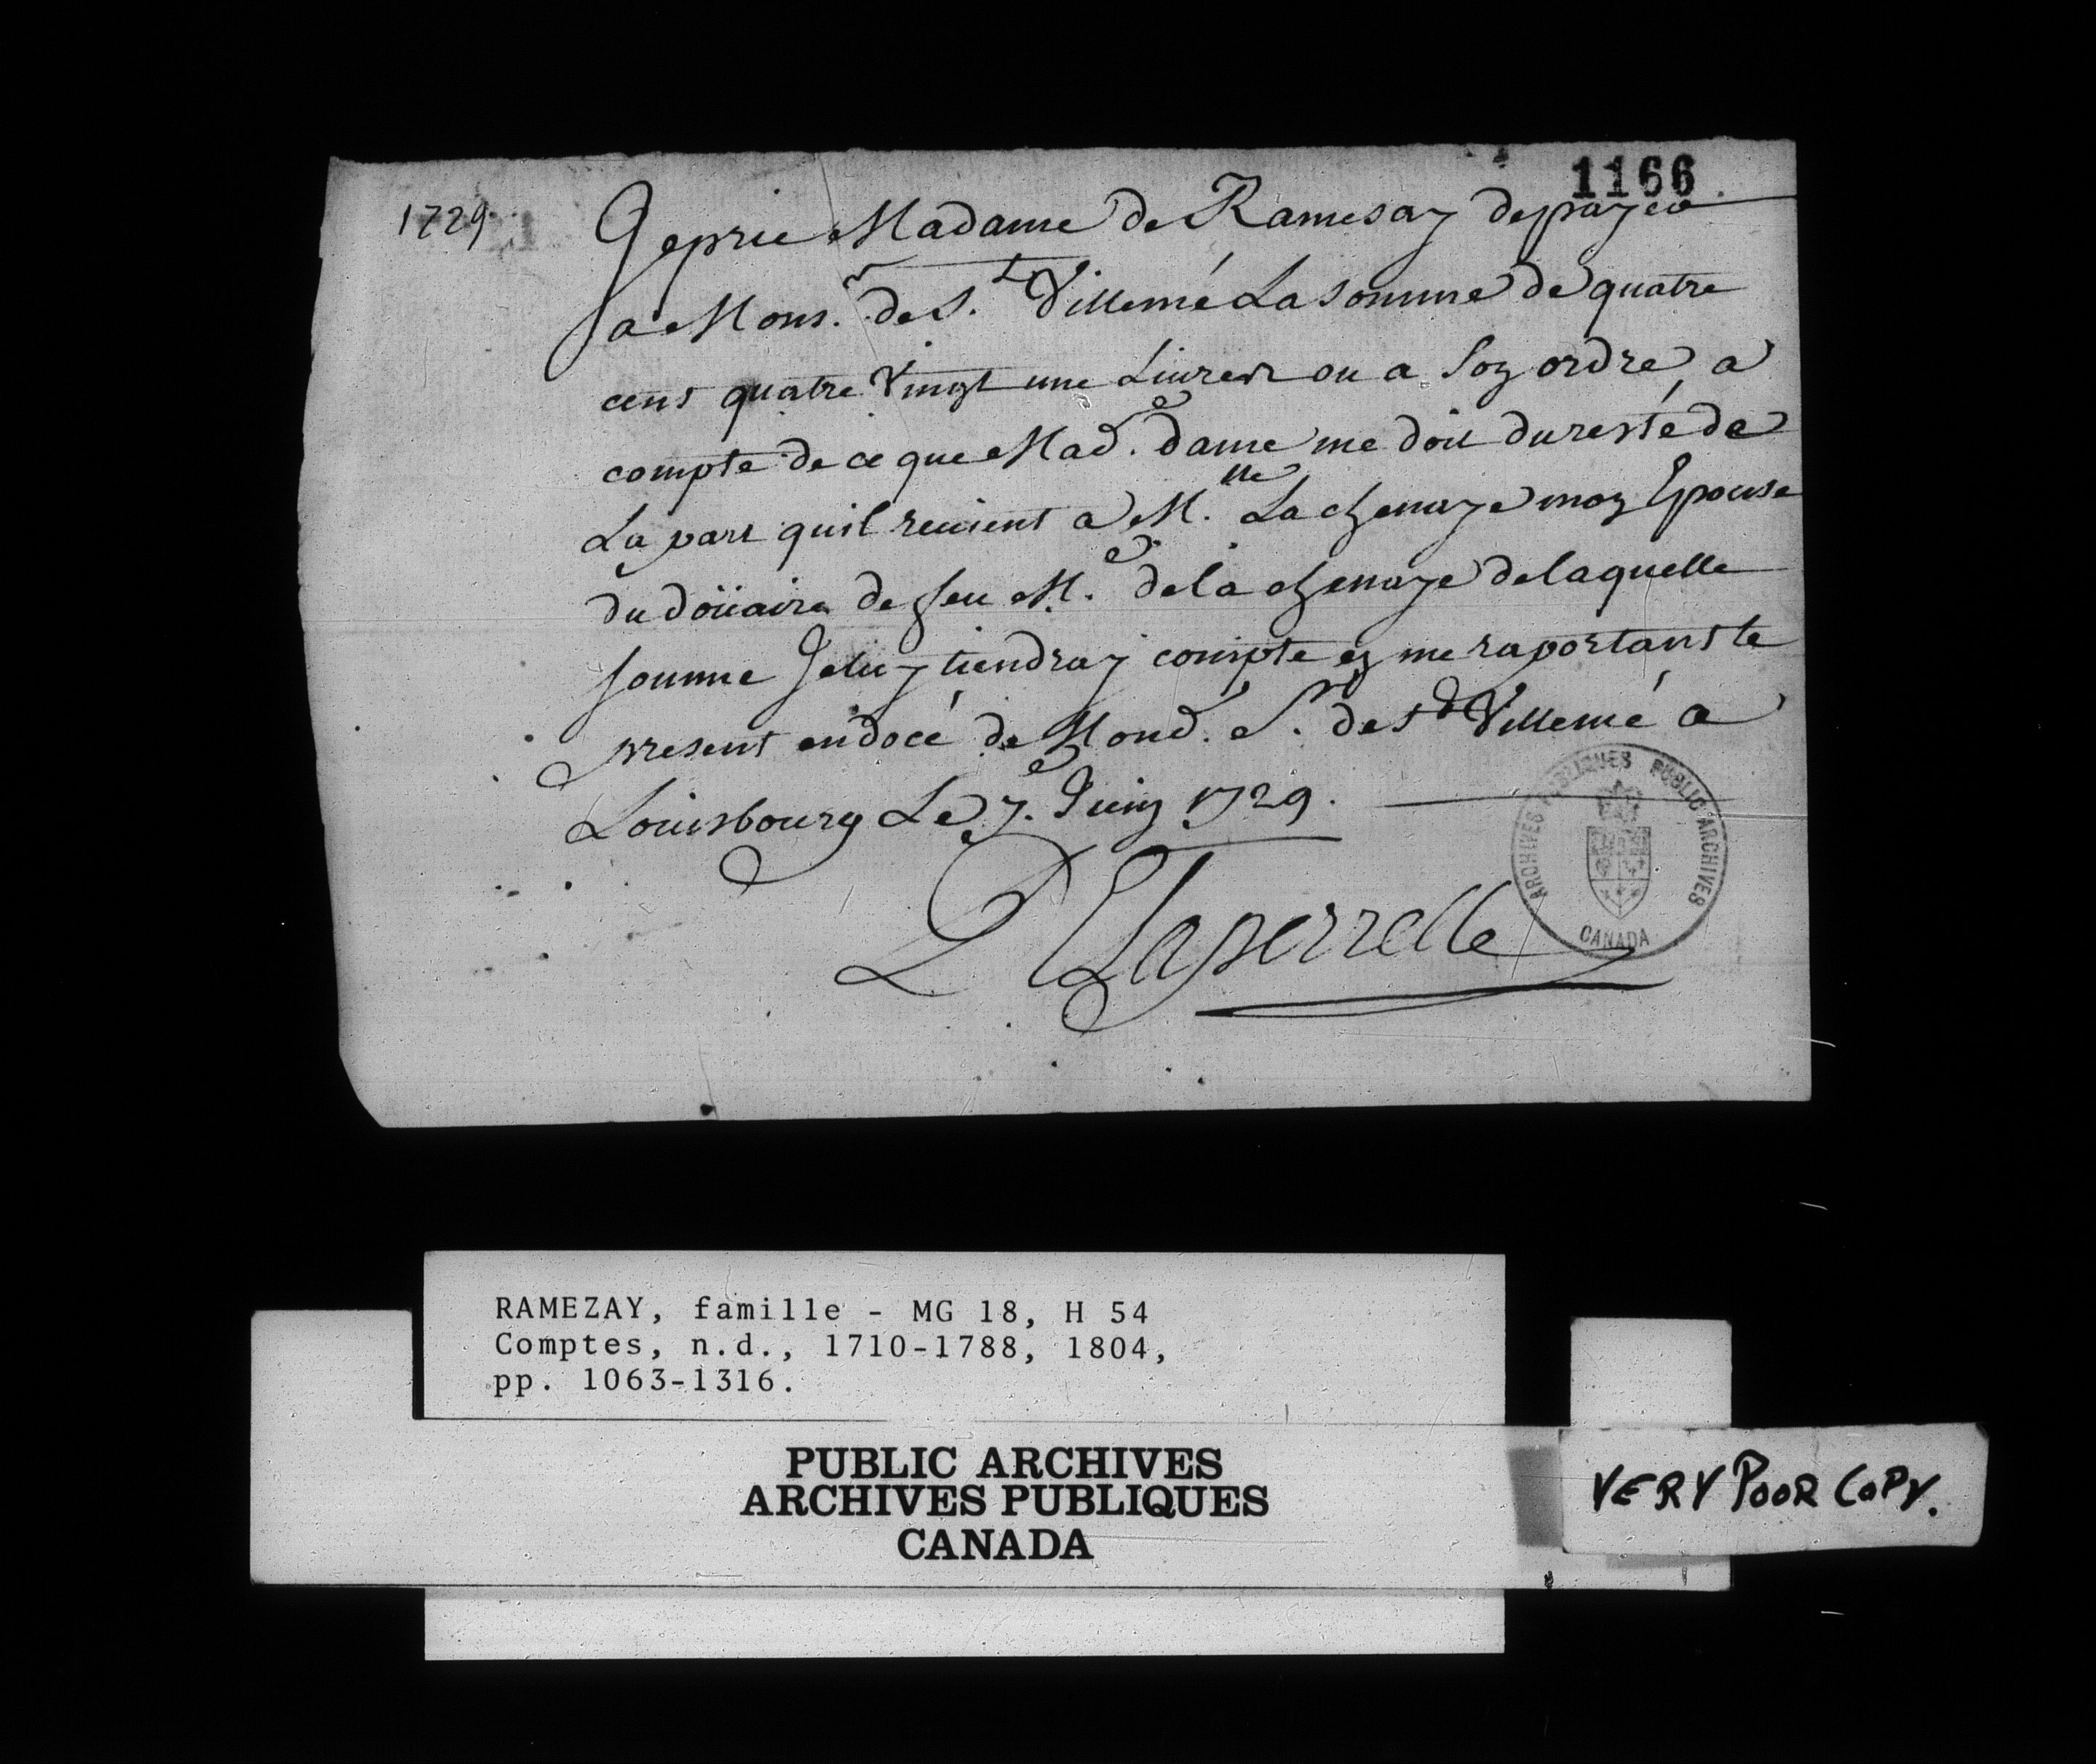 1166
1729.
Jeprie Madame de Ramesay depayer
a Mons.r de S.t Villemé La somme de quatre
cens quatre Vingt une Livres ou a Son ordre a
compte de ce que Mad.e dame me doit du resté de
La part quil revient a M.lle La chenaye mon Epouse
du doüaire de feu M.e de la chenaye de laquelle
somme Jeluy tiendray compte en me raportant le
present endocé de Mond. S.r de St Villemé a
Louisbourg Le 7.e Juin 1729.
Laperrelle
ARCHIVES PUBLIQUES PUBLIC ARCHIVES
CANADA
RAMEZAY, famille - MG 18, H 54
Comptes, n.d., 1710-1788, 1804,
pp. 1063-1316.
PUBLIC ARCHIVES
ARCHIVES PUBLIQUES
CANADA
VERY POOR COPY.